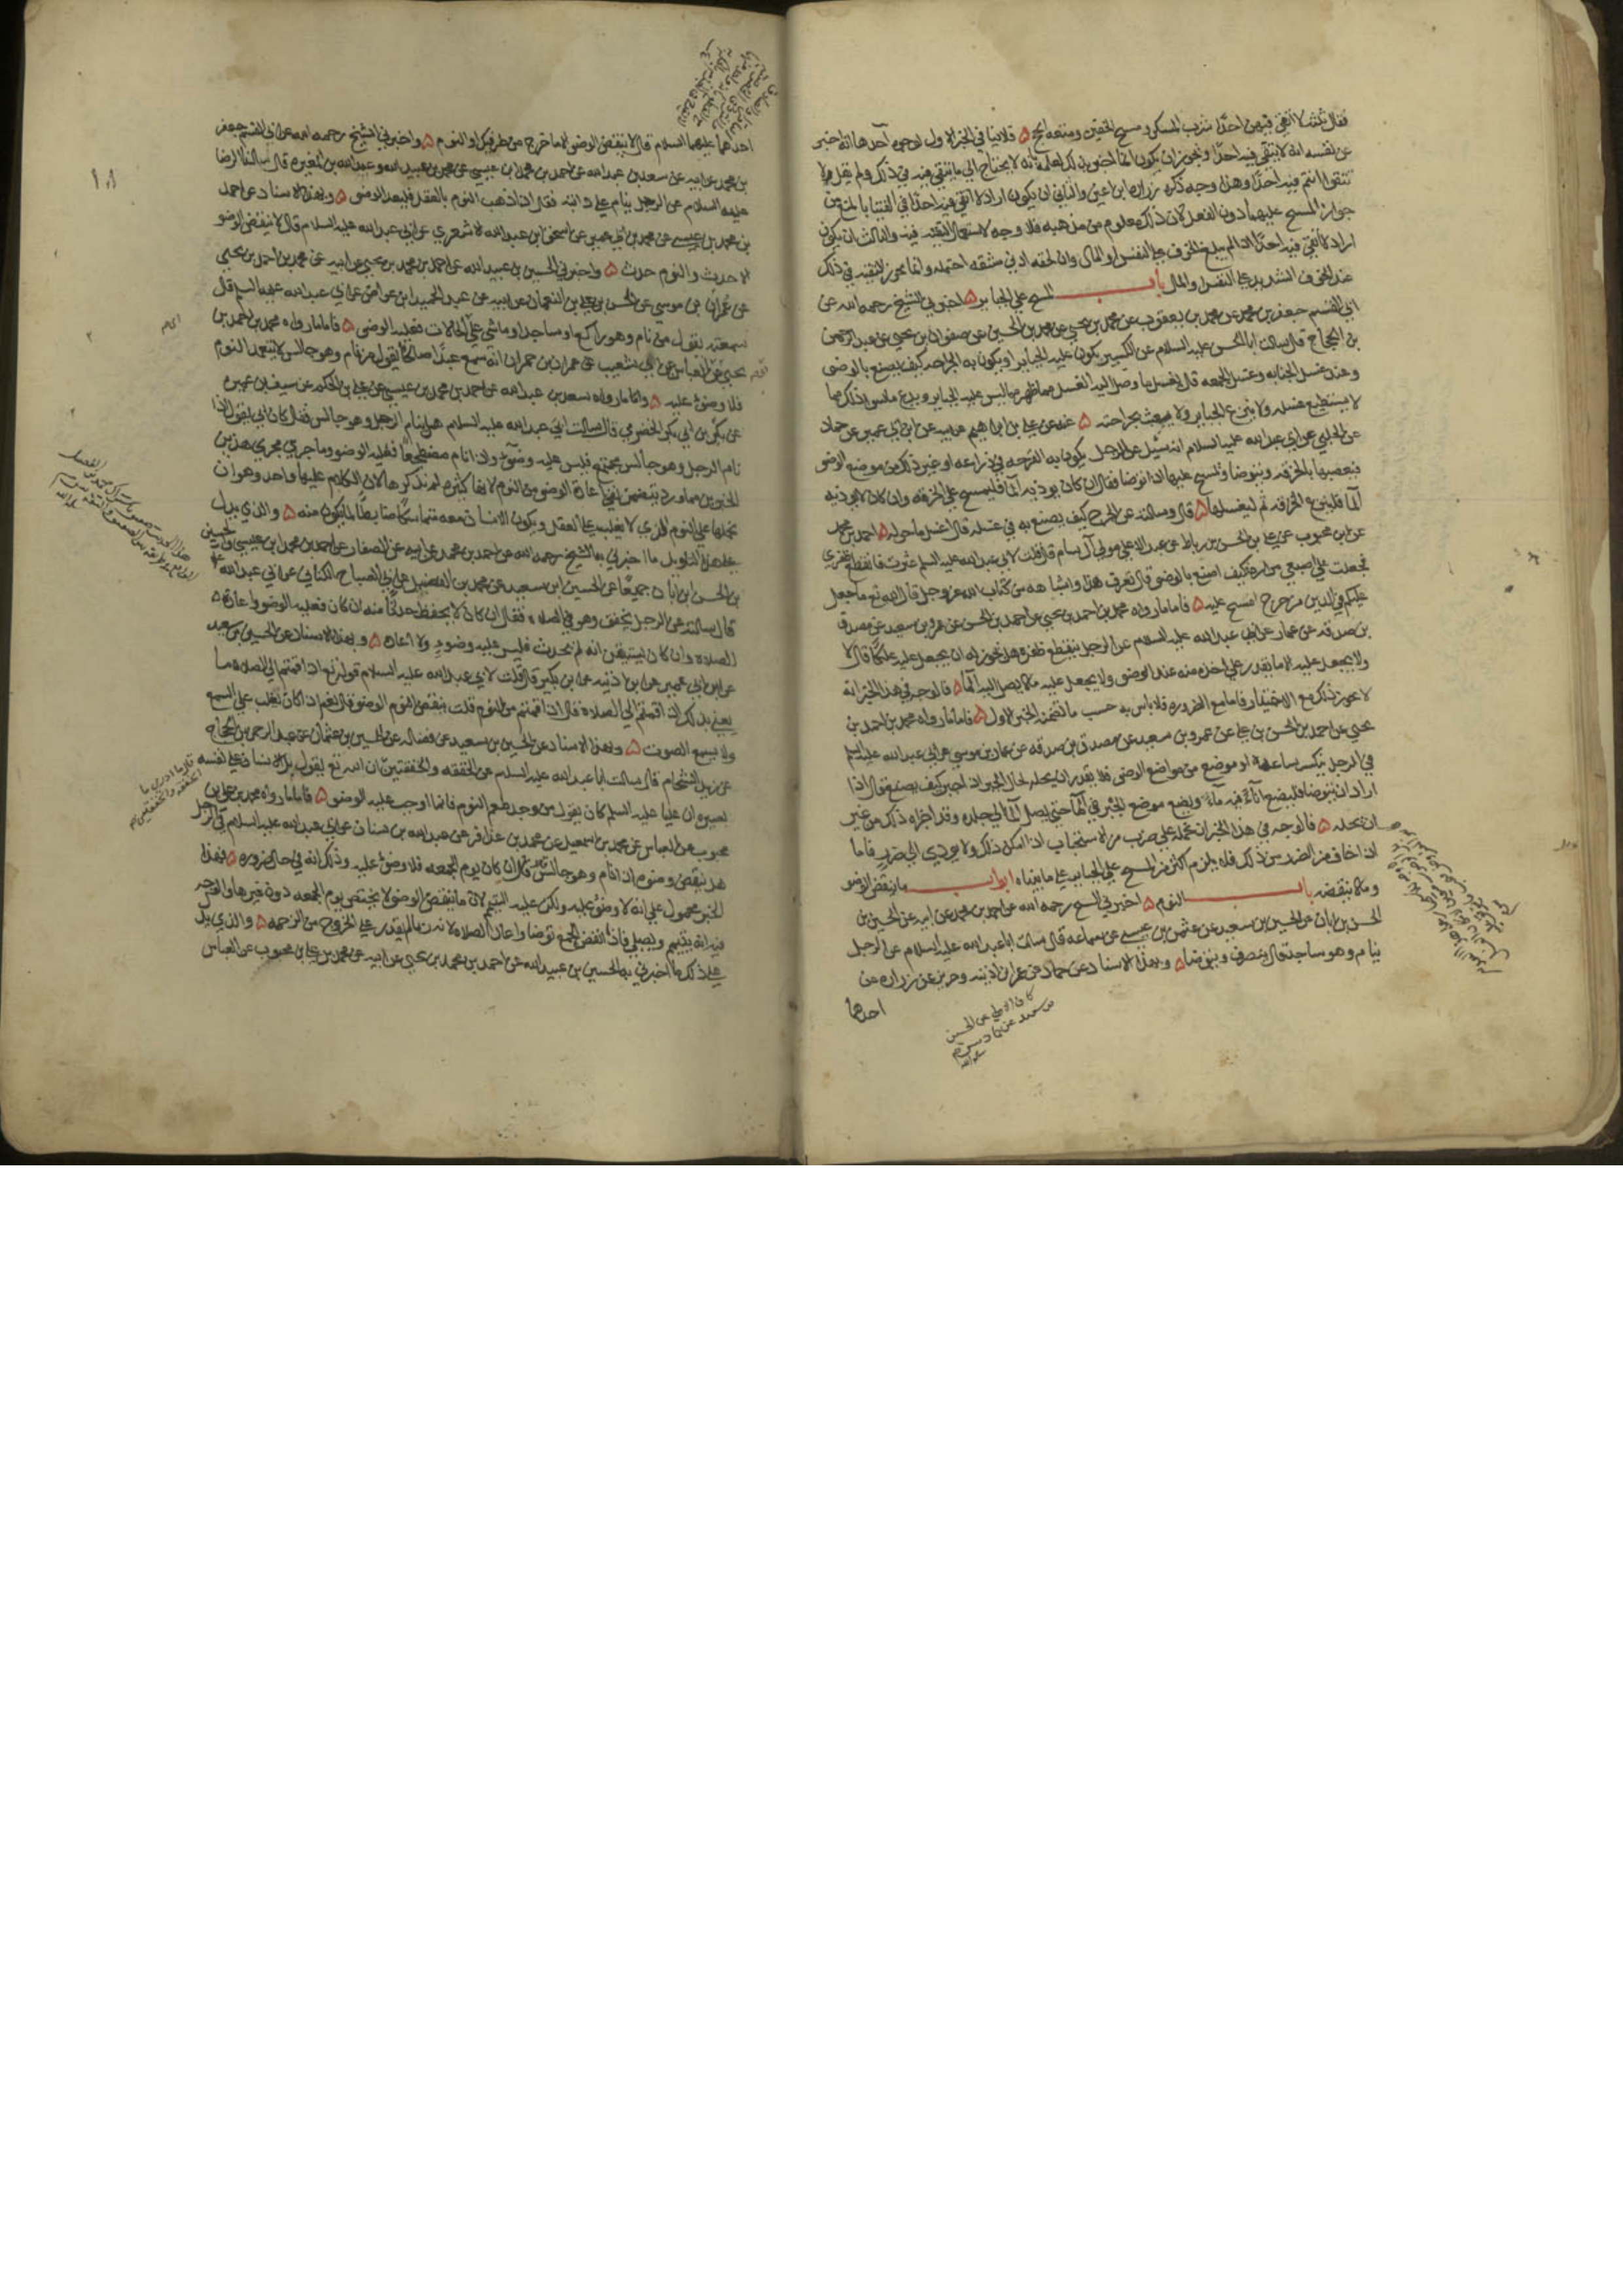 فقال ثلثة لا اتقي فيهن احدا شرب المسكر ومسح الخفين ومتعه الحج ٥ فلا ينافي الخبر الاول لوجوه احدها انه اخبر
عن نفسه انه لا يتقي فيه احدا ويجوز ان يكون انما اخبر بذلك لعلمه بانه لا يحتاج الي ما يتقي فيه في ذلك ولم يقل لا
تتقوا انتم فيه احدا وهذا وجه ذكره زراره ابن اعين والثاني ان يكون اراد لا اتقي فيه احدا في الفتيا بالمنع من
جواز المسح عليهما دون الفعل لان ذلك معلوم من مذهبه فلا وجه لاستعمال التقيه فيه والثالث ان يكون
اراد لا اتقي فيه احدا اذا لم يبلغ الخوف علي النفس او المال وان لحقه ادني مشقه احتمله وانما يجوز التقيه في ذلك
عند الخوف الشديد علي النفس او المال باب المسح علي الجباير ٥ اخبرني الشيخ رحمه الله عن
ابي القسم جعفر بن محمد عن محمد بن يعقوب عن محمد بن يحيي عن محمد بن الحسين عن صفوان بن يحيي عن عبد الرحمن
بن الحجاج قال سالت ابا الحسن عليه السلام عن الكسير يكون عليه الجباير او يكون به الجراحه كيف يصنع بالوضوء
وعند غسل الجنابه وغسل الجمعه قال يغسل ما وصل اليه الغسل مما ظهر مما ليس عليه الجباير ويدع ما سوي ذلك مما
لا يستطيع غسله ولا ينزع الجباير ولا يعبث بجراحته ٥ عنه عن علي بن ابراهيم عن ابيه عن ابن ابي عمير عن حماد
عن الحلبي عن ابي عبد الله عليه السلام انه سئل عن الرجل يكون به القرحه في ذراعه او غير ذلك من موضع الوضوء
فيعصبها بالخرقه ويتوضا ويمسح عليها اذا توضا فقال ان كان يوذيه الما فليمسح علي الخرقه وان كان لا يوذيه
الما فلينزع الخرقه ثم ليغسلها ٥ قال وسالته عن الجرح كيف يصنع به في غسله قال اغسل ما حوله ٥ احمد بن محمد
عن ابن محبوب عن علي بن الحسن بن رباط عن عبد الاعلي مولي آل سام قال قلت لابي عبد الله عليه السلم عثرت فانقطع ظفري
فجعلت علي اصبعي مراره فكيف اصنع بالوضوء قال تعرف هذا واشباهه من كتاب الله عز وجل قال الله تع ما جعل
عليكم في الدين من حرج امسح عليه ٥ فاما ما رواه محمد بن احمد بن يحيي عن احمد بن الحسن عن عمرو بن سعيد عن مصدق
بن صدقه عن عمار عن ابي عبد الله عليه السلام عن الرجل ينقطع ظفره هل يجوز له ان يجعل عليه علكا قال لا
ولا يجعل عليه الا ما يقدر علي اخذه منه عند الوضوء ولا يجعل عليه ما لا يصل اليه الما ٥ فالوجه في هذا الخبر انه
لا يجوز ذلك مع الاختيار فاما مع الضروره فلا باس به حسب ما تضمنه الخبر الاول ٥ فاما ما رواه محمد بن احمد بن
يحيي عن احمد بن الحسن بن علي عن عمرو بن سعيد عن مصدق بن صدقه عن عمار بن موسي عن ابي عبد الله عليه السلم
في الرجل ينكسر ساعده او موضع من مواضع الوضوء فلا يقدر ان يحله لحال الجبر اذا اجبر كيف يصنع قال اذا
اراد ان يتوضا فليضع اناء فيه ماء ويضع موضع الجبر في الما حتي يصل الما الي جلده وقد اجزاه ذلك من غير
ان يحله ٥ فالوجه في هذا الخبر ان نحمله علي ضرب من الاستحباب اذا امكن ذلك ولا يودي الي ضرر فاما
اذا خاف من الضرر من ذلك فلا يلزم اكثر من المسح علي الجباير علي ما بيناه ابواب ما ينقض الوضوء
وما لا ينقضه باب النوم ٥ اخبرني الشيخ رحمه الله عن احمد بن محمد عن ابيه عن الحسين بن
الحسن بن ابان عن الحسين بن سعيد عن عثمن بن عيسي عن سماعه قال سالت ابا عبد الله عليه السلام عن الرجل
ينام وهو ساجد قال ينصرف ويتوضا ٥ وبهذا الاسناد عن حماد عن عمر ان اذينه وحريز عن زراره عن
احدهما
احدهما عليهما السلام قال لا ينقض الوضوء الا ما خرج من طرفيك او النوم ٥ واخبرني الشيخ رحمه الله عن ابي القسم جعفر
بن محمد عن ابيه عن سعد بن عبد الله عن احمد بن محمد بن عيسي عن محمد بن عبيد الله وعبد الله بن المغيره قال سالنا الرضا
عليه السلام عن الرجل ينام علي دابته فقال اذا ذهب النوم بالعقل فليعد الوضوء ٥ وبهذا الاسناد عن احمد
بن محمد بن عيسي عن محمد بن ابي عمير عن اسحق ابن عبد الله الاشعري عن ابي عبد الله عليه السلام قال لا ينقض الوضوء
الا حدث والنوم حدث ٥ واخبرني الحسين بن عبيد الله عن احمد بن محمد بن يحيي عن ابيه عن محمد بن احمد بن يحيي
عن عمران بن موسي عن الحسن بن علي بن النعمان عن ابيه عن عبد الحميد ابن عواض عن ابي عبد الله عليه السلم قال
سمعته يقول من نام وهو راكع او ساجد او ماشي علي اي الحالات فعليه الوضوء ٥ فاما ما رواه محمد بن احمد بن
يحيي عن العباس عن ابي شعيب عن عمران بن حمران انه سمع عبدا صالحا يقول من نام وهو جالس لا يتعمد النوم
فلا وضوء عليه ٥ واما ما رواه سعد بن عبد الله عن احمد بن محمد بن عيسي عن علي بن الحكم عن سيف بن عميره
عن بكر بن ابي بكر الحضرمي قال سالت ابي عبد الله عليه السلام هل ينام الرجل وهو جالس فقال كان ابي يقول اذا
نام الرجل وهو جالس مجتمع فليس عليه وضوء واذا نام مضطجعا فعليه الوضوء وما جري مجري هذين
الخبرين مما ورد يتضمن نفي اعاده الوضوء من النوم لانها كثيره لم نذكرها لان الكلام عليها واحد وهو ان
نحملها علي النوم الذي لا يغلب علي العقل ويكون الانسان معه متماسكا ضابطا لما يكون منه ٥ والذي يدل
علي هذا التاويل ما اخبرني به الشيخ رحمه الله عن احمد بن محمد عن ابيه عن الصفار عن احمد بن محمد ابن عيسي والحسين
بن الحسن ابن ابان جميعا عن الحسين ابن سعيد عن محمد بن الفضيل عن ابي الصباح الكناني عن ابي عبد الله
قال سالته عن الرجل يخفق وهو في الصلاه فقال ان كان لا يحفظ حدثا منه ان كان فعليه الوضوء واعاده
الصلاه وان كان يستيقن انه لم يحدث فليس عليه وضوء ولا اعاده ٥ وبهذا الاسناد عن الحسين بن سعيد
عن ابن ابي عمير عن ابن اذينه عن ابن بكير قال قلت لابي عبد الله عليه السلام قوله تع اذا قمتم الي الصلاه ما
يعني بذلك اذا قمتم الي الصلاه قال اذا قمتم من النوم قلت ينقض النوم الوضوء قال نعم اذا كان يغلب علي السمع
ولا يسمع الصوت ٥ وبهذا الاسناد عن الحسين بن سعيد عن فضاله عن الحسين بن عثمان عن عبد الرحمن بن الحجاج
عن زيد الشحام قال سالت ابا عبد الله عليه السلام عن الخفقه والخفقتين ان الله تع يقول بل الانسان علي نفسه
بصيره ان عليا عليه السلم كان يقول من وجد طعم النوم فانما اوجب عليه الوضوء ٥ فاما ما رواه محمد بن علي بن
محبوب عن العباس عن محمد بن اسمعيل عن محمد بن عذافر عن عبد الله بن سنان عن ابي عبد الله عليه السلام في الرجل
هل ينقض وضوءه اذا نام وهو جالس قال ان كان يوم الجمعه فلا وضوء عليه وذلك انه في حال ضروره ٥ فهذا
الخبر محمول علي انه لا وضوء عليه ولكن عليه التيمم لان ما ينقض الوضوء لا يختص بيوم الجمعه دون غيرها والوجه
فيه انه يتيمم ويصلي فاذا انفض الجمع توضا واعاد الصلاه لانه ربما لم يقدر علي الخروج من الزحمه ٥ والذي يدل
علي ذلك ما اخبرني به الحسين بن عبيد الله عن احمد بن محمد بن يحيي عن ابيه عن محمد بن علي بن محبوب عن العباس
١٨
قال ما ادري ما
الخفقه والخفقتين